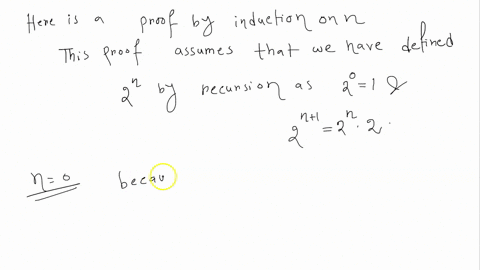 Here is a proof by induction on n
This proof assumes that we have defined
2^n by recursion as 2^0 = 1 &
2^{n+1} = 2^n · 2 .
n = 0 becau